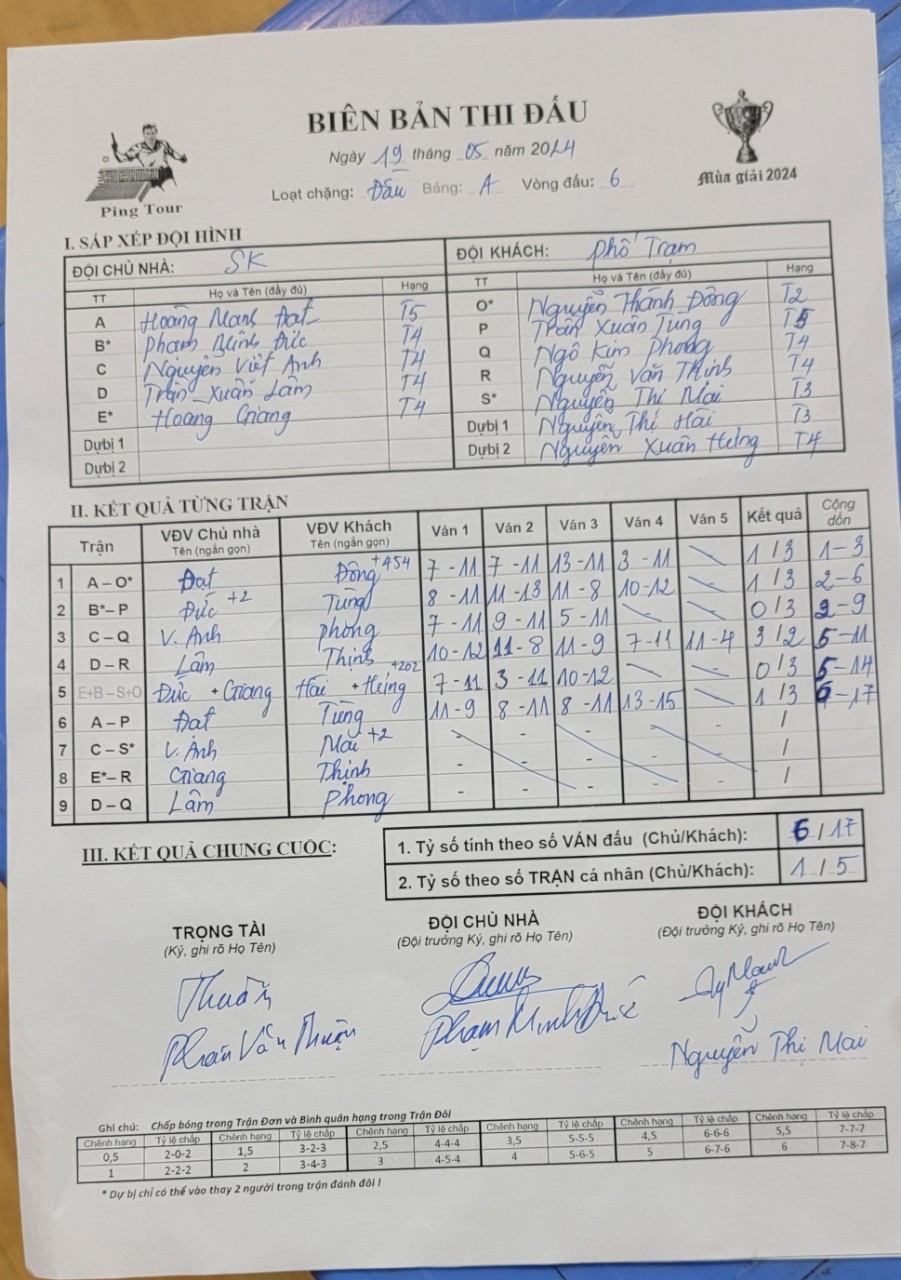 BIÊN BẢN THI ĐẤU
Ngày 19 tháng 05 năm 2024
Ping Tour
Loạt chặng: Đấu Bảng: A Vòng đấu: 6
Mùa giải 2024
I. SẮP XẾP ĐỘI HÌNH
ĐỘI CHỦ NHÀ: SK ĐỘI KHÁCH: Phố Trạm
TT Họ và Tên (đầy đủ) Hạng TT Họ và Tên (đầy đủ) Hạng
A Hoàng Mạnh Đạt T5 O* Nguyễn Thành Đông T2
B* Phạm Minh Đức T4 P Trần Xuân Tùng T5
C Nguyễn Việt Anh T4 Q Ngô Kim Phong T4
D Trần Xuân Lâm T4 R Nguyễn Văn Thịnh T4
E* Hoàng Giang T4 S* Nguyễn Thị Mai T3
Dự bị 1 Dự bị 1 Nguyễn Thị Hải T3
Dự bị 2 Dự bị 2 Nguyễn Xuân Hưng T4
II. KẾT QUẢ TỪNG TRẬN
Trận VĐV Chủ nhà Tên (ngắn gọn) VĐV Khách Tên (ngắn gọn) Ván 1 Ván 2 Ván 3 Ván 4 Ván 5 Kết quả Cộng dồn
1 A – O* Đạt Đông +454 7 - 11 7 - 11 13 - 11 3 - 11 1 / 3 1 - 3
2 B* – P Đức +2 Tùng 8 - 11 11 - 13 11 - 8 10 - 12 1 / 3 2 - 6
3 C – Q V. Anh Phong 7 - 11 9 - 11 5 - 11 0 / 3 2 - 9
4 D – R Lâm Thịnh 10 - 12 11 - 8 11 - 9 7 - 11 11 - 4 3 / 2 5 - 11
5 E+B – S+O Đức + Giang Hải + Hưng +202 7 - 11 3 - 11 10 - 12 0 / 3 5 - 14
6 A – P Đạt Tùng 11 - 9 8 - 11 8 - 11 13 - 15 1 / 3 6 - 17
7 C – S* V. Anh Mai +2 - - - - - /
8 E* – R Giang Thịnh - - - - - /
9 D – Q Lâm Phong - - - - - /
III. KẾT QUẢ CHUNG CUỘC:
1. Tỷ số tính theo số VÁN đấu (Chủ/Khách): 6 / 17
2. Tỷ số theo số TRẬN cá nhân (Chủ/Khách): 1 / 5
TRỌNG TÀI ĐỘI CHỦ NHÀ ĐỘI KHÁCH
(Ký, ghi rõ Họ Tên) (Đội trưởng Ký, ghi rõ Họ Tên) (Đội trưởng Ký, ghi rõ Họ Tên)
Thuận
Phan Văn Thuận Phạm Minh Đức Nguyễn Thị Mai
Ghi chú: Chấp bóng trong Trận Đơn và Bình quân hạng trong Trận Đôi
Chênh hạng Tỷ lệ chấp Chênh hạng Tỷ lệ chấp Chênh hạng Tỷ lệ chấp Chênh hạng Tỷ lệ chấp Chênh hạng Tỷ lệ chấp Chênh hạng Tỷ lệ chấp
0,5 2-0-2 1,5 3-2-3 2,5 4-4-4 3,5 5-5-5 4,5 6-6-6 5,5 7-7-7
1 2-2-2 2 3-4-3 3 4-5-4 4 5-6-5 5 6-7-6 6 7-8-7
* Dự bị chỉ có thể vào thay 2 người trong trận đánh đôi !